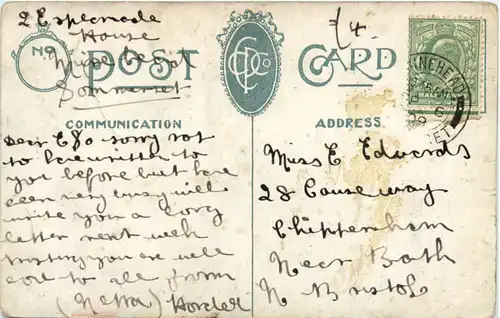 2 Esplanade
House
Minehead
Sommerset
No
POST CARD
CPCo
COMMUNICATION
ADDRESS
HALF
Dear E so sorry not
to have written to
you before but have
been very busy will
write you a long
letter next week
trusting you are well
love to all from
(Netta) Horder
Miss E Edwards
28 Causeway
Chippenham
Near Bath
N Bristol